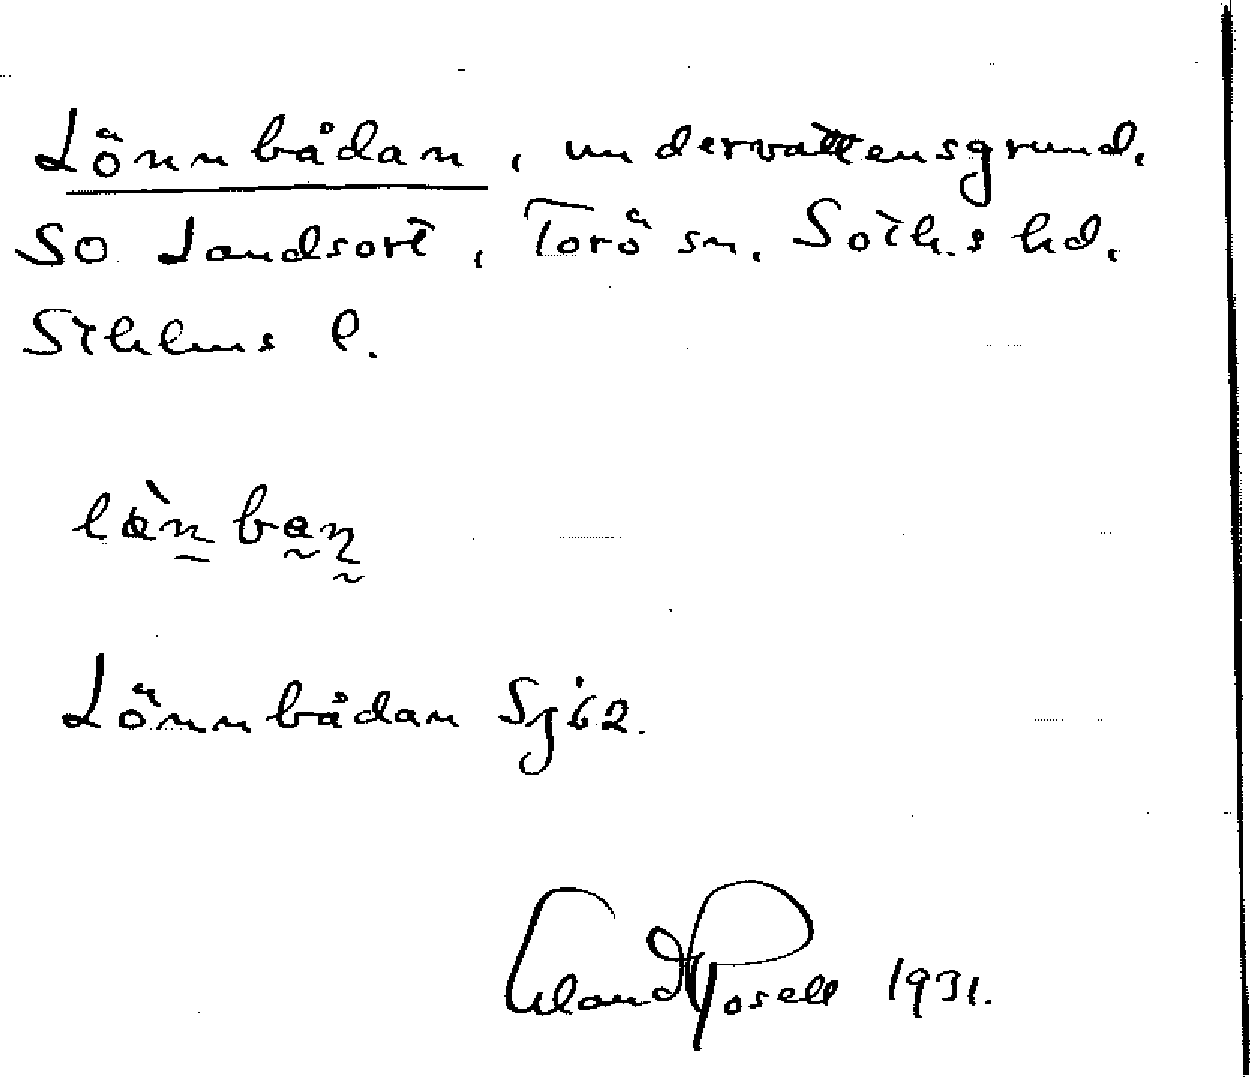 Lönnbådan, undervattensgrund.
SO Landsort, Torö sn. Soth.s hd.
Sthlms l.
Lönnbådan Sj 62.
Erland Rosell 1931.